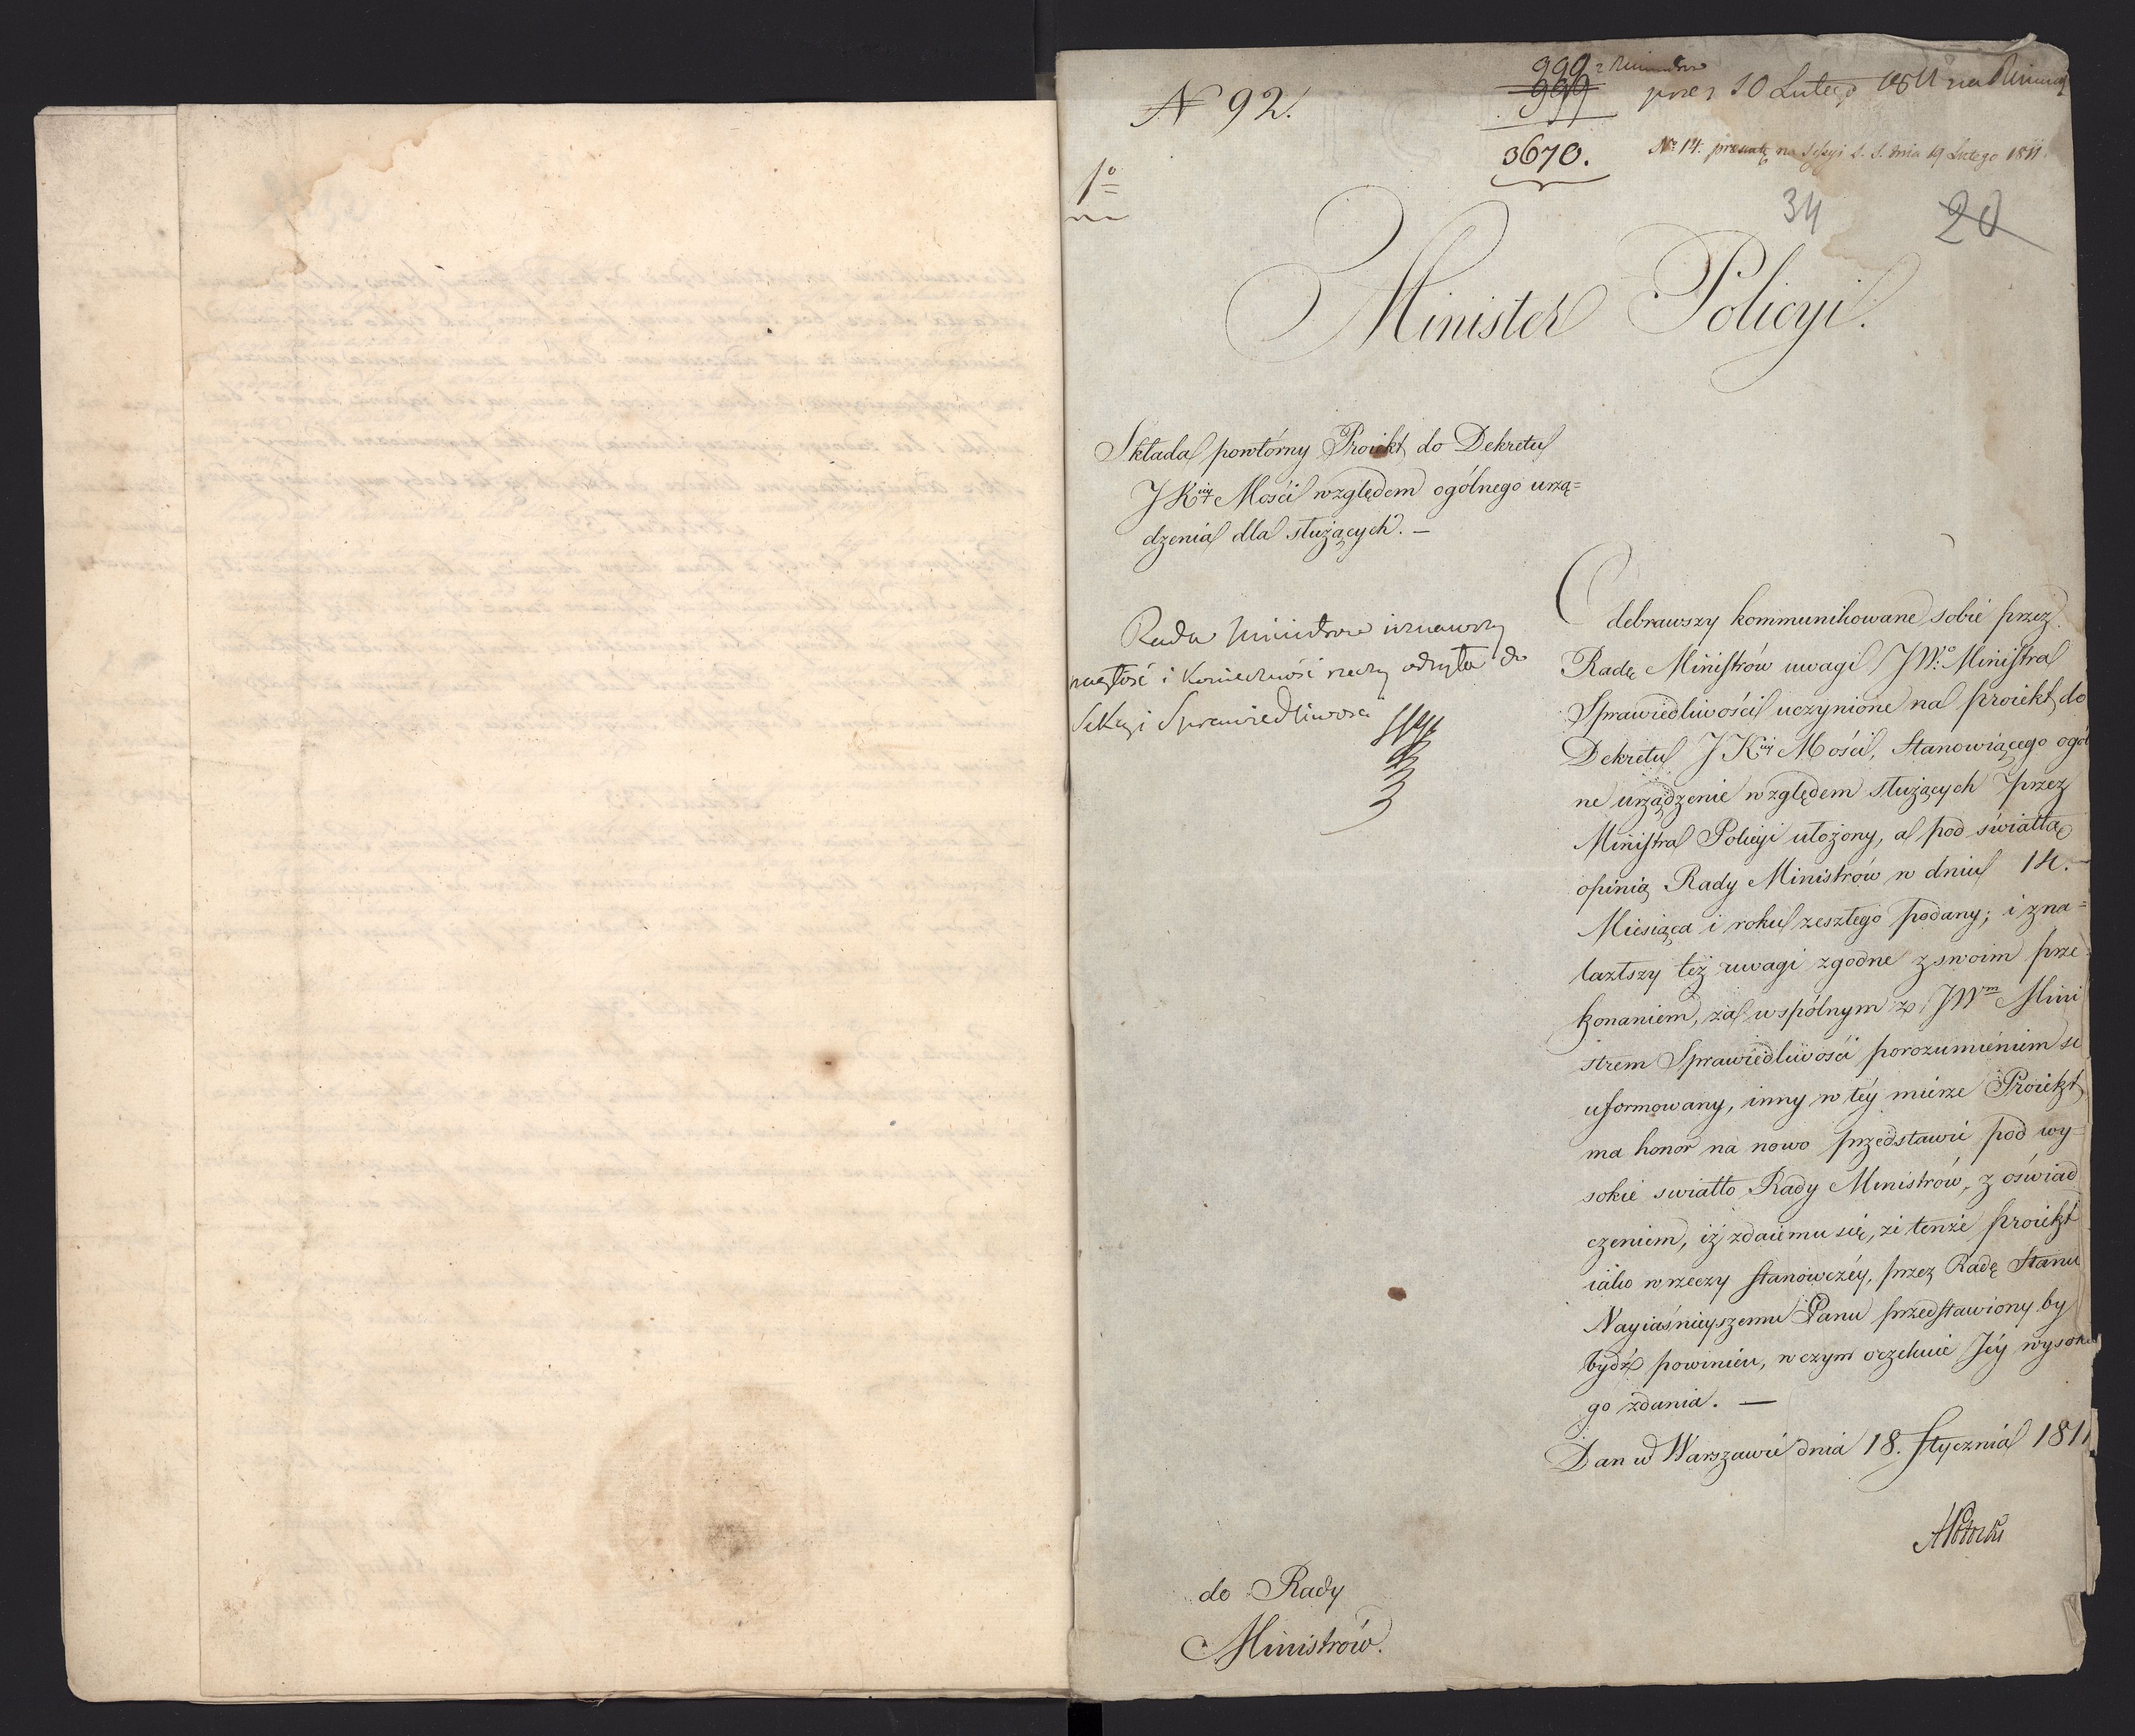 N 92.
999
999
3670.
10 Lutego 1811 na
N: 14. na Sessyi S. S. dnia 19 Lutego 1811.
1º
34
20
Minister Policyi.
Składa powtórny Proiekt do Dekretu
J Kiéy Mości względem ogólnego urzą=
dzenia dla służących. —
Rada Ministrow uznawszy
nagłość i konieczność rzeczy odsyła do
Sekcyi Sprawiedliwosci
Odebrawszy kommunikowane sobie przez
Radę Ministrów uwagi JWº Ministra
Sprawiedliwości uczynione na proiekt do
Dekretu J Kiéy Mości, Stanowiącego ogól
ne urządzenie względem służących przez
Ministra Policyi ułożony, a pod światłą
opinią Rady Ministrów w dniu 14. —
Miesiąca i roku zeszłego podany; i zna=
lazłszy też uwagi zgodne z swoim prze=
konaniem, za wspólnym z JWm Mini
strem Sprawiedliwości porozumieniem się
uformowany, inny w téy mierze Proiekt
ma honor na nowo przedstawić pod wy=
sokie swiatło Rady Ministrów, z oświad
czeniem, iż zdaie mu się, że tenże proiekt
iako w rzeczy stanowczéy, przez Radę Stanu
Nayiaśnieyszemu Panu przedstawiony by
bydź powinien, w czym oczekuie Jéy wysokie
go zdania. —
Dan w Warszawie dnia 18. Stycznia 1811
APotocki
do Rady
Ministrów.